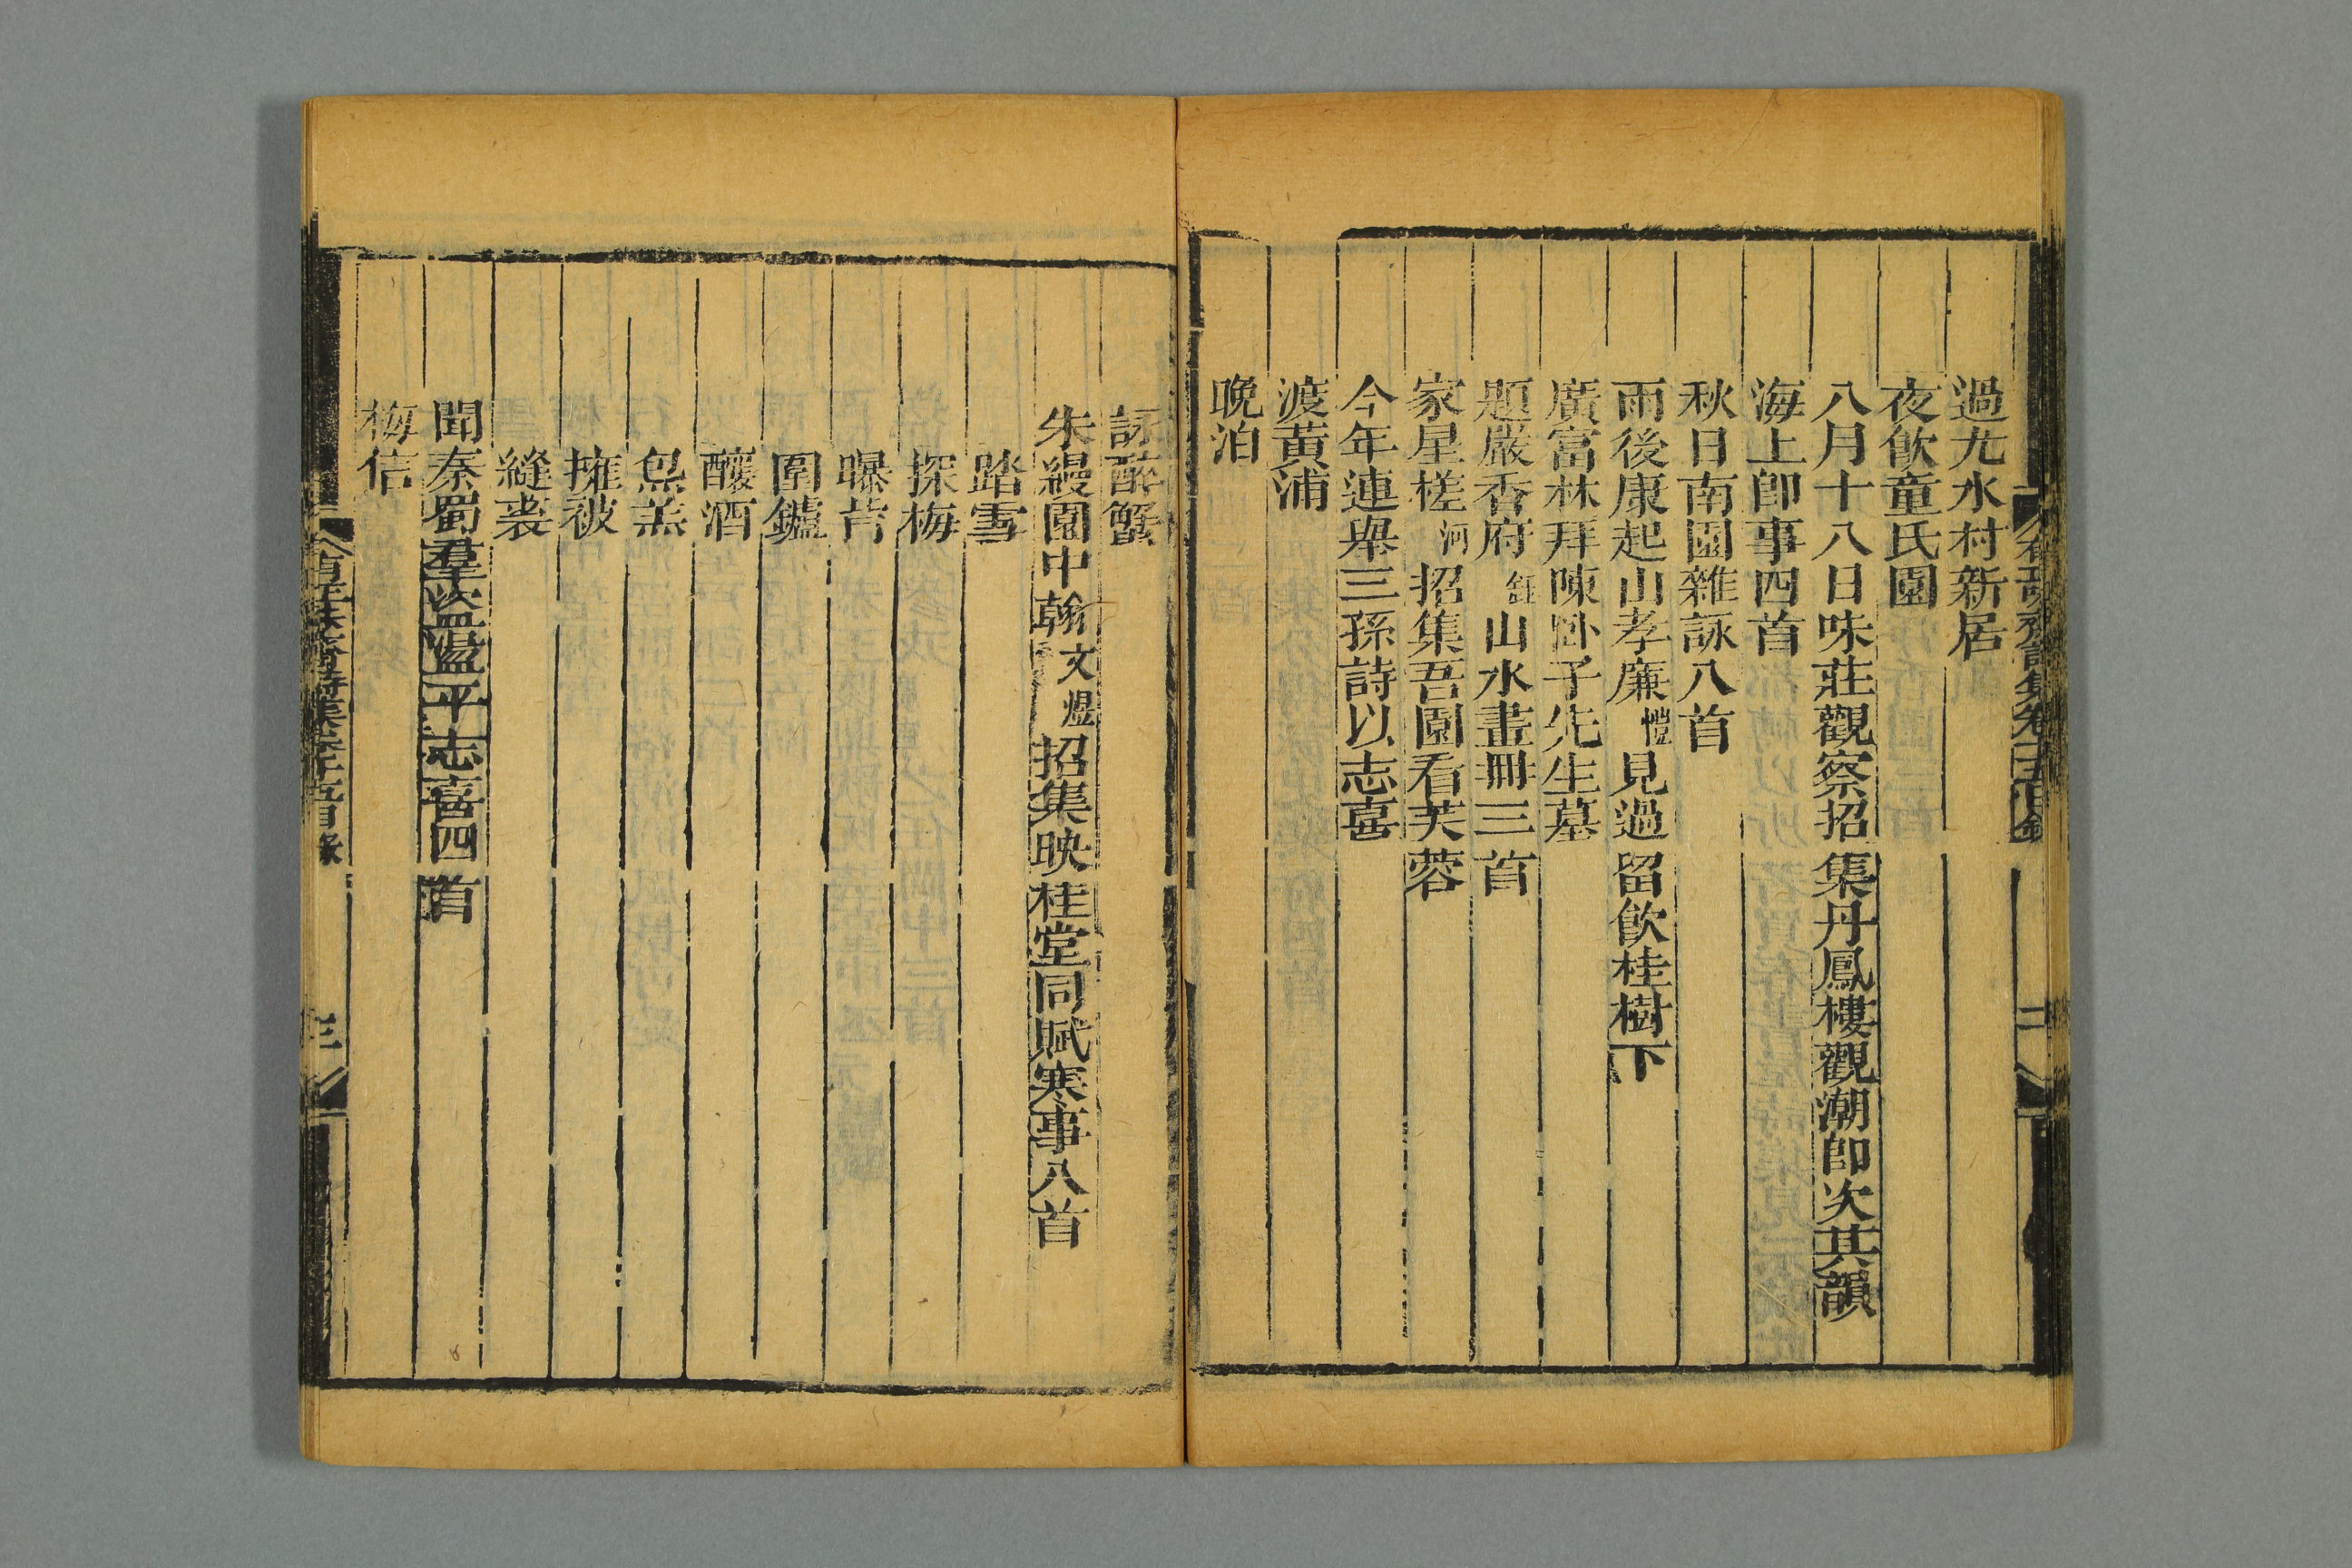 過尤水村新居
夜飲童氏園
八月十八日味莊觀察招集丹鳳樓觀潮卽次其韻
海上卽事四首
秋日南園雜詠八首
雨後康起山孝廉愷見過留飲桂樹下
廣富林拜陳卧子先生墓
題嚴香府鈺山水畫冊三首
家星槎河招集吾園看芙蓉
今年連舉三孫詩以志喜
渡黃浦
晚泊
詠醉蟹
朱縵園中翰文煜招集映桂堂同賦寒事八首
踏雪
探梅
曝背
圍鑪
釀酒
煑羔
擁被
縫裘
聞秦蜀羣盜蕩平志喜四首
梅信